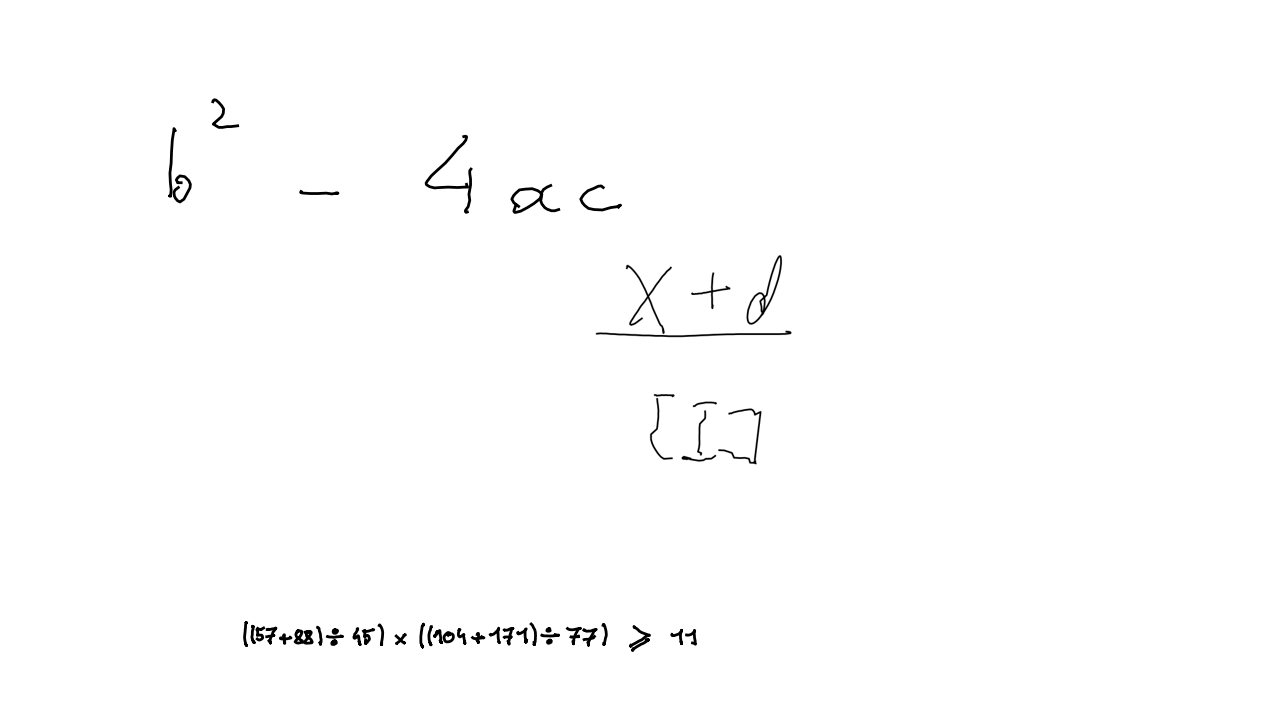 b² - 4ac
x + d
[I]
((57+88)÷45)×((104+171)÷77) ⩾ 11